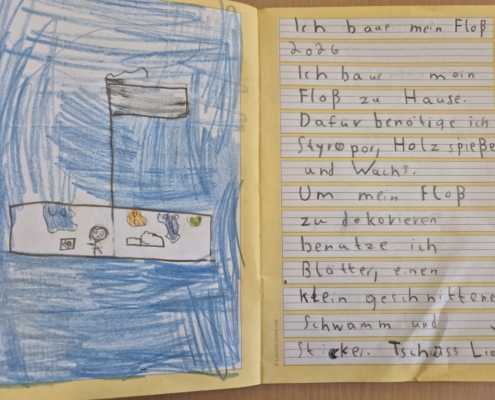 Ich baue mein Floß
2026
Ich baue mein
Floß zu Hause.
Dafür benötige ich
Styropor, Holzspieße
und Wachs.
Um mein Floß
zu dekorieren
benutze ich
Blätter, einen
klein geschnittene
Schwamm und
Sticker. Tschüss